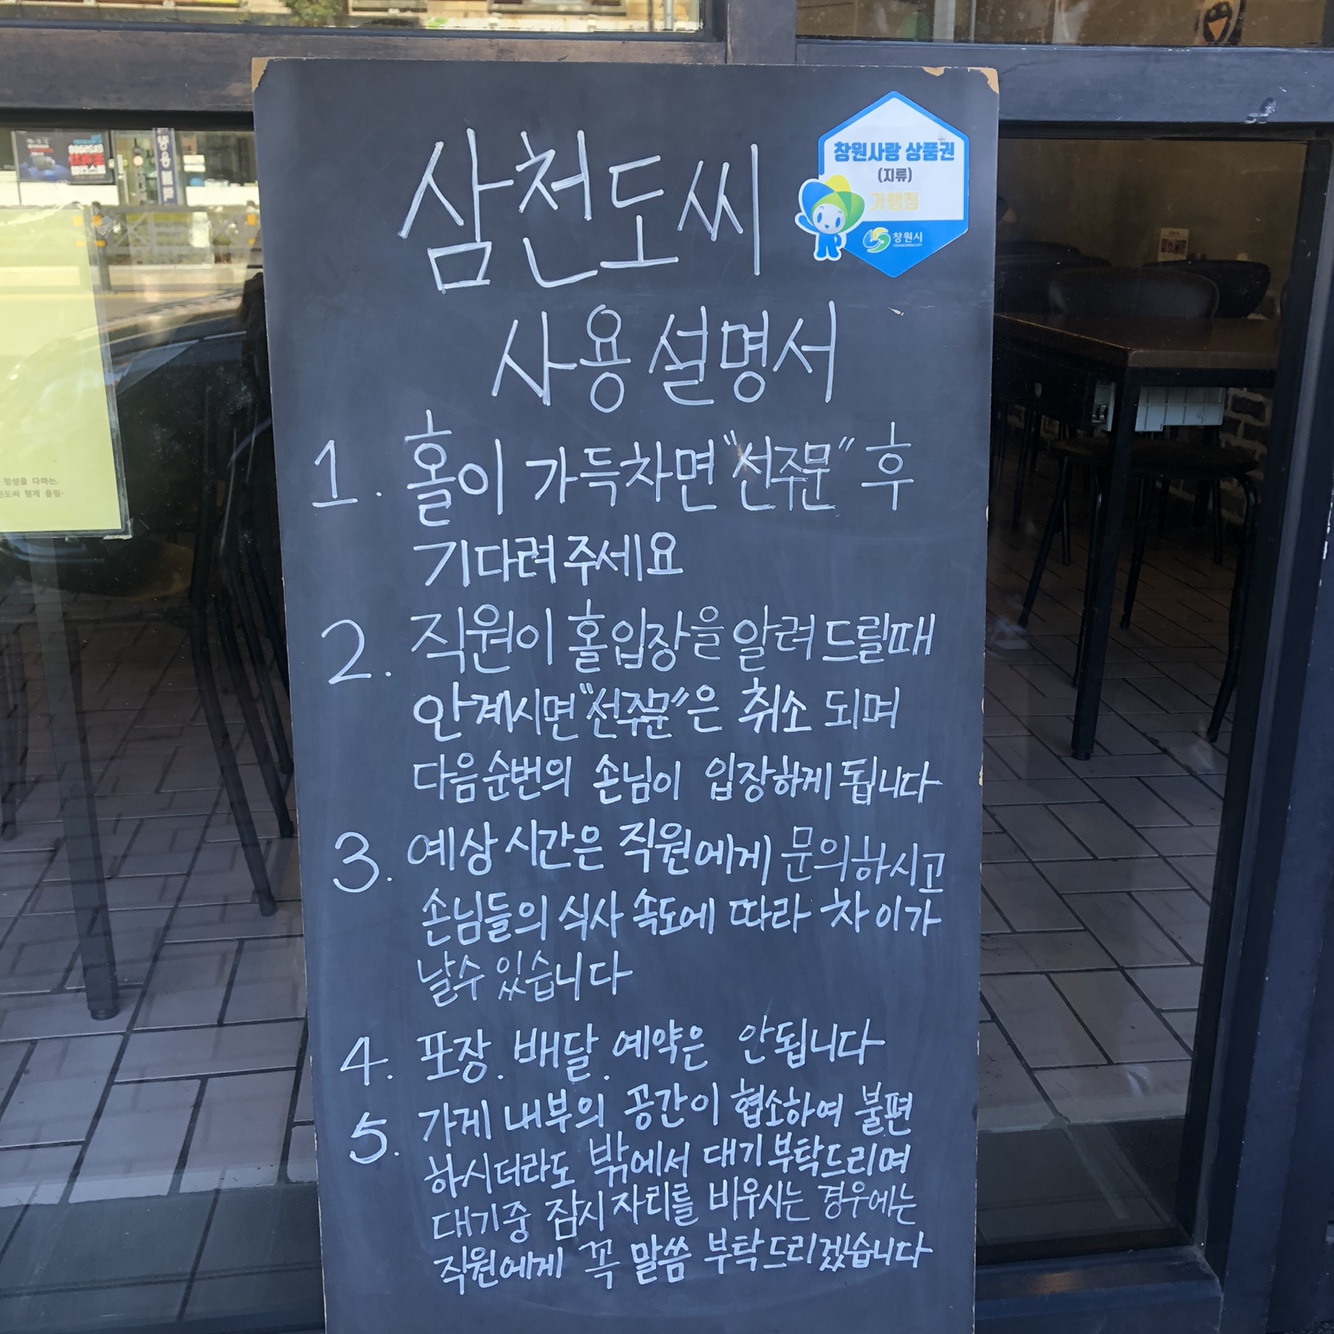 삼천도씨
창원사랑 상품권
(지류)
가맹점
창원시
사용설명서
1. 홀이 가득차면 "선주문" 후
기다려주세요
2. 직원이 홀입장을 알려드릴때
안계시면 "선주문"은 취소 되며
다음순번의 손님이 입장하게 됩니다
3. 예상시간은 직원에게 문의하시고
손님들의 식사 속도에 따라 차이가
날수 있습니다
4. 포장. 배달. 예약은 안됩니다
5. 가게 내부의 공간이 협소하여 불편
하시더라도 밖에서 대기부탁드리며
대기중 잠시 자리를 비우시는 경우에는
직원에게 꼭 말씀 부탁드리겠습니다
정성을 다하는,